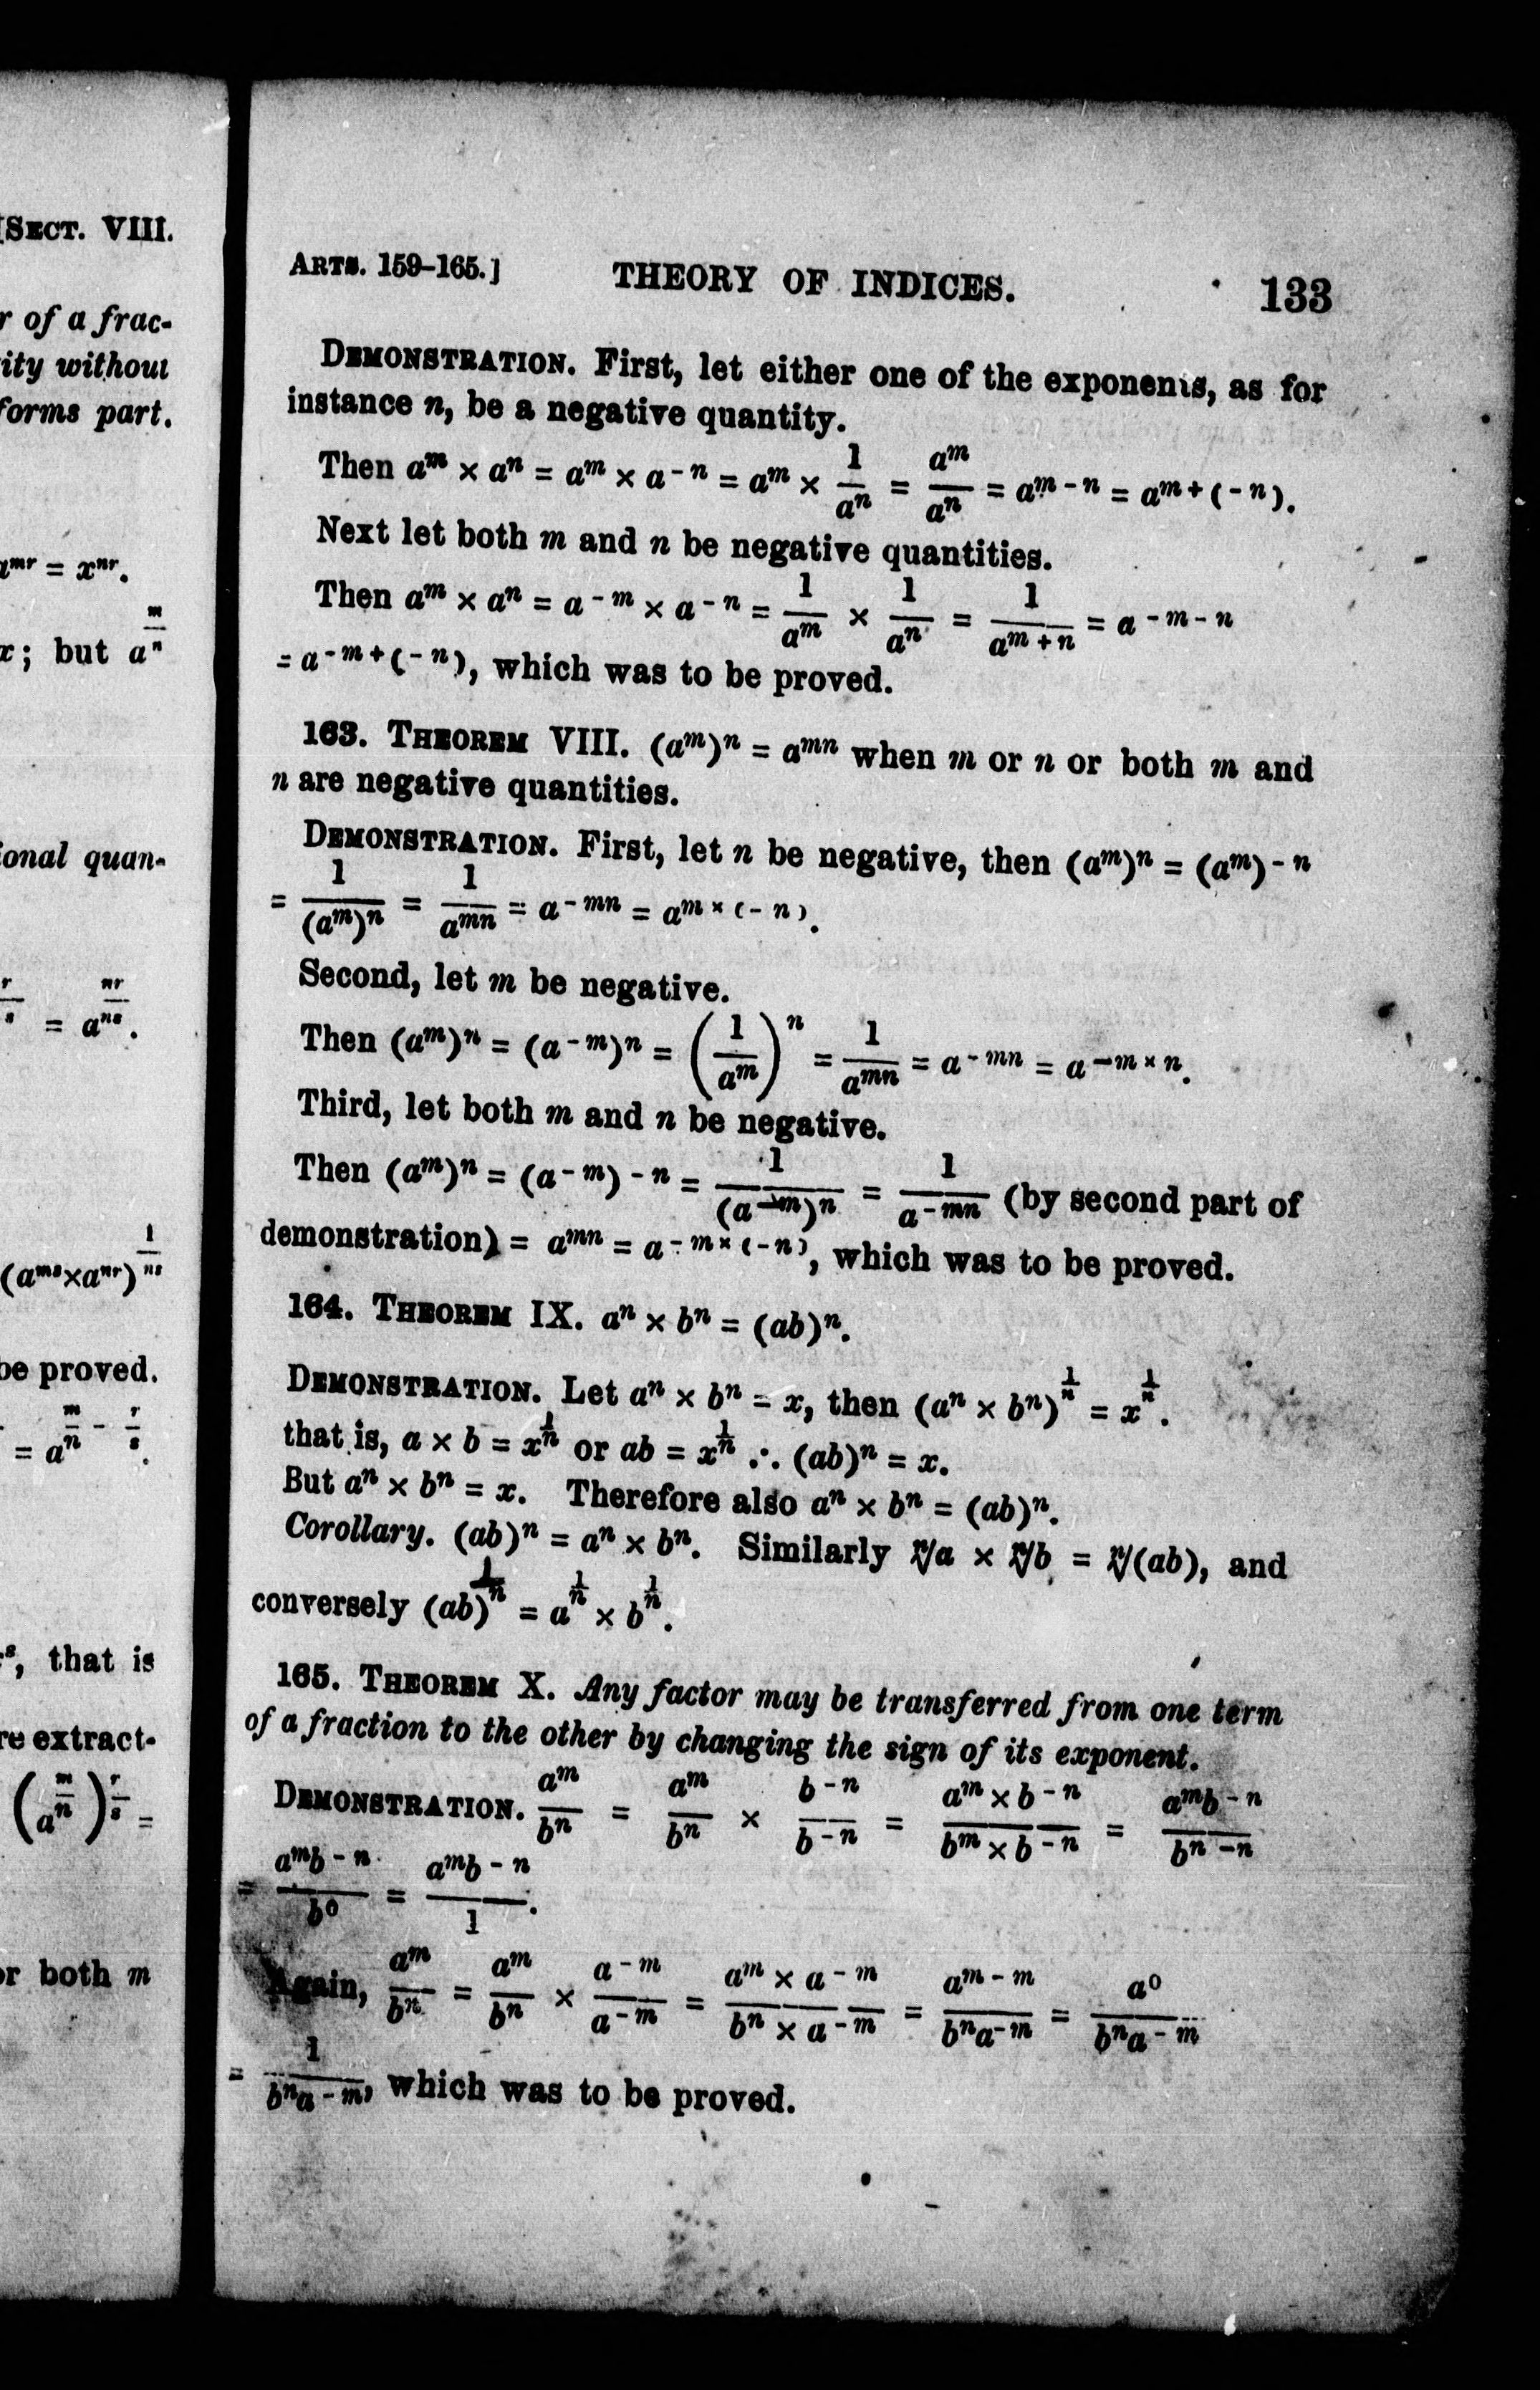 [SECT. VIII.
r of a frac-
ity without
forms part.
a^{mr} = x^{nr}.
x; but a^{m/n}
ional quan-
r/s = a^{nr/ns}.
(a^{ms}×a^{nr})^{1/ns}
be proved.
= a^{m/n - r/s}.
s, that is
re extract-
(a^{m/n})^{r/s} =
or both m
ARTS. 159–165.] THEORY OF INDICES. 133
DEMONSTRATION. First, let either one of the exponents, as for
instance n, be a negative quantity.
Then a^m × a^n = a^m × a^{-n} = a^m × 1/a^n = a^m/a^n = a^{m-n} = a^{m+(-n)}.
Next let both m and n be negative quantities.
Then a^m × a^n = a^{-m} × a^{-n} = 1/a^m × 1/a^n = 1/a^{m+n} = a^{-m-n}
= a^{-m+(-n)}, which was to be proved.
163. THEOREM VIII. (a^m)^n = a^{mn} when m or n or both m and
n are negative quantities.
DEMONSTRATION. First, let n be negative, then (a^m)^n = (a^m)^{-n}
= 1/(a^m)^n = 1/a^{mn} = a^{-mn} = a^{m×(-n)}.
Second, let m be negative.
Then (a^m)^n = (a^{-m})^n = (1/a^m)^n = 1/a^{mn} = a^{-mn} = a^{-m×n}.
Third, let both m and n be negative.
Then (a^m)^n = (a^{-m})^{-n} = 1/(a^{-m})^n = 1/a^{-mn} (by second part of
demonstration) = a^{mn} = a^{-m×(-n)}, which was to be proved.
164. THEOREM IX. a^n × b^n = (ab)^n.
DEMONSTRATION. Let a^n × b^n = x, then (a^n × b^n)^{1/n} = x^{1/n}.
that is, a × b = x^{1/n} or ab = x^{1/n} ∴ (ab)^n = x.
But a^n × b^n = x. Therefore also a^n × b^n = (ab)^n.
Corollary. (ab)^n = a^n × b^n. Similarly ⁿ√a × ⁿ√b = ⁿ√(ab), and
conversely (ab)^{1/n} = a^{1/n} × b^{1/n}.
165. THEOREM X. Any factor may be transferred from one term
of a fraction to the other by changing the sign of its exponent.
DEMONSTRATION. a^m/b^n = a^m/b^n × b^{-n}/b^{-n} = (a^m × b^{-n})/(b^m × b^{-n}) = a^m b^{-n}/b^{n-n}
= a^m b^{-n}/b^0 = a^m b^{-n}/1.
Again, a^m/b^n = a^m/b^n × a^{-m}/a^{-m} = (a^m × a^{-m})/(b^n × a^{-m}) = a^{m-m}/(b^n a^{-m}) = a^0/(b^n a^{-m})
= 1/(b^n a^{-m}), which was to be proved.